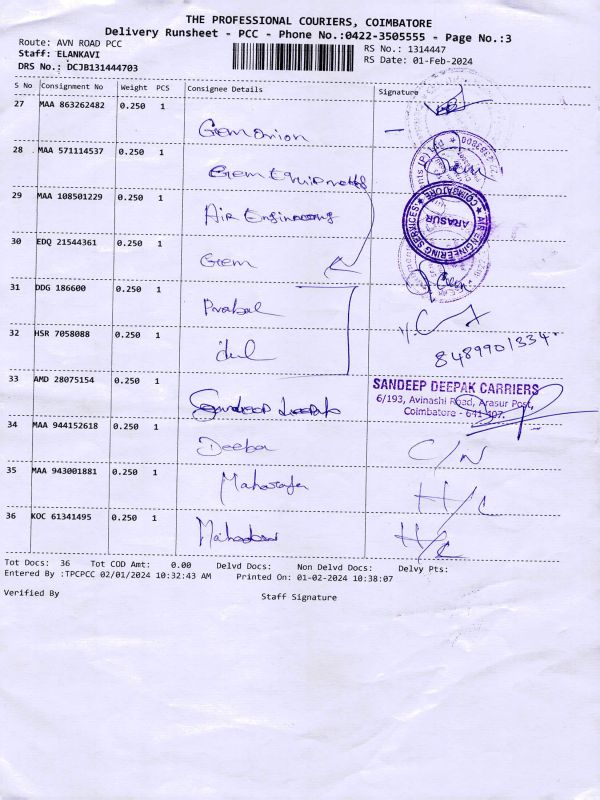 THE PROFESSIONAL COURIERS, COIMBATORE
Delivery Runsheet - PCC - Phone No.:0422-3505555 - Page No.:3
Route: AVN ROAD PCC
RS No.: 1314447
Staff: ELANKAVI
RS Date: 01-Feb-2024
DRS No.: DCJB131444703
S No Consignment No Weight PCS Consignee Details Signature
27 MAA 863262482 0.250 1
Gem Onion
28 MAA 571114537 0.250 1
Gem
29 MAA 108501229 0.250 1
Air Engineering
AIR ENGINEERING SERVICES
ARASUR
COIMBATORE
30 EDQ 21544361 0.250 1
Gem
31 DDG 186600 0.250 1
Prabal
32 HSR 7058088 0.250 1
8489901334
33 AMD 28075154 0.250 1
SANDEEP DEEPAK CARRIERS
6/193, Avinashi Road, Arasur Post,
Coimbatore - 641 407.
Sandeep Deepak
34 MAA 944152618 0.250 1
Deeba C/N
35 MAA 943001881 0.250 1
H/C
36 KOC 61341495 0.250 1
H/C
Tot Docs: 36 Tot COD Amt: 0.00 Delvd Docs: Non Delvd Docs: Delvy Pts:
Entered By :TPCPCC 02/01/2024 10:32:43 AM Printed On: 01-02-2024 10:38:07
Verified By Staff Signature